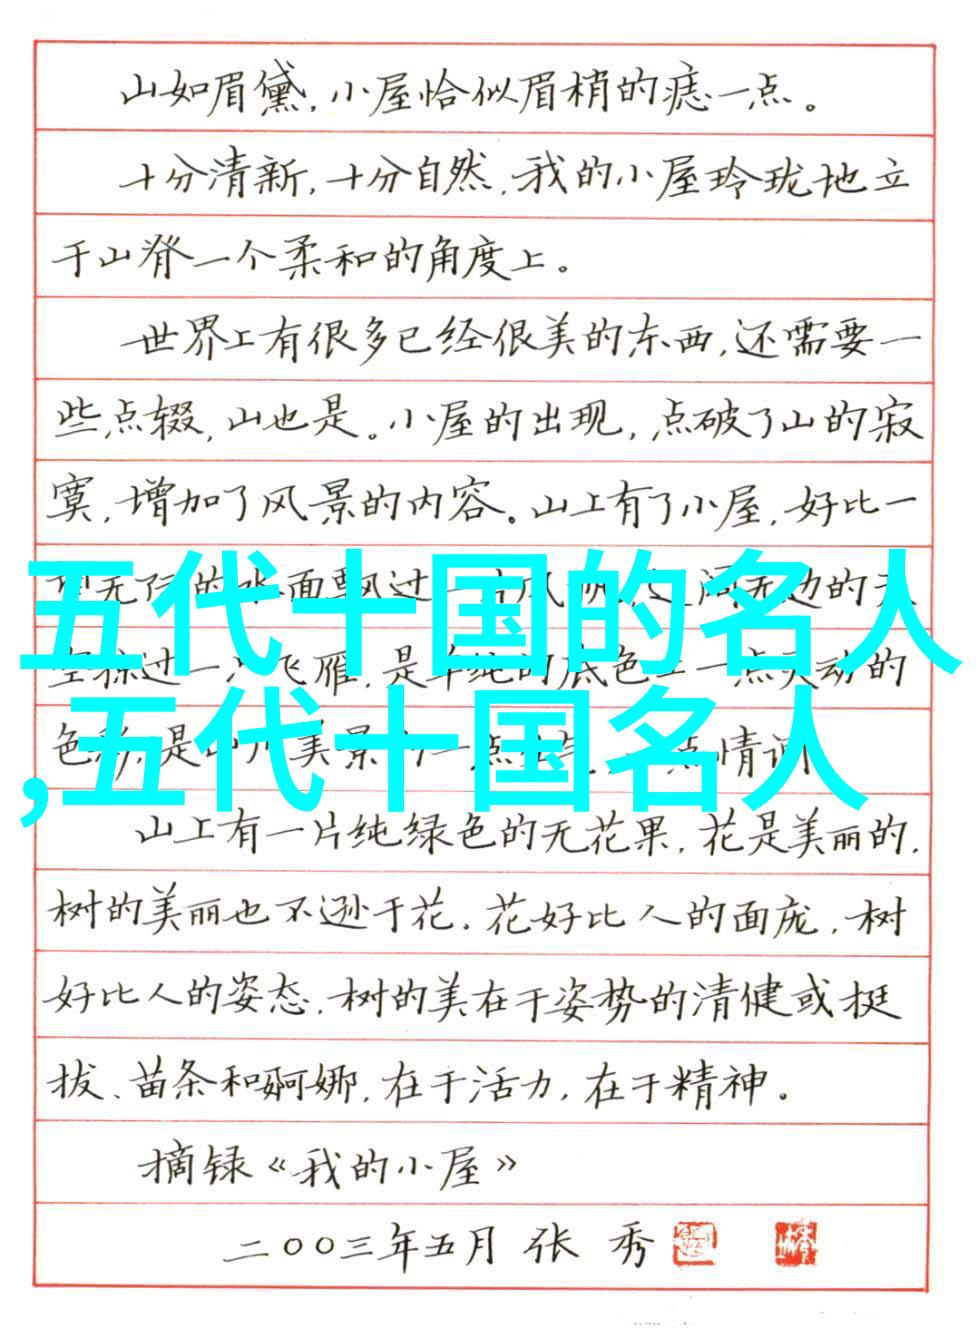 山如眉黛,小屋恰似眉梢的痣一点。
十分清新,十分自然,我的小屋玲珑地立
于山脊一个柔和的角度上。
世界上有很多已经很美的东西,还需要一
些点缀,山也是。小屋的出现,点破了山的寂
寞,增加了风景的内容。山上有了小屋,好比一
五代十国的名人
无际的水面飘过一片风帆,辽阔无边的天
空掠过一只飞雁,是单纯的底色上一点灵动的
,五代十国名人
色彩,是山川美景的一点
情调
山上有一片纯绿色的无花果,花是美丽的,
树的美丽也不逊于花。花好比人的面庞,树
好比人的姿态。树的美在于姿势的清健或挺
拔、苗条和婀娜,在于活力,在于精神。
摘录《我的小屋》
二〇〇三年五月 张 秀